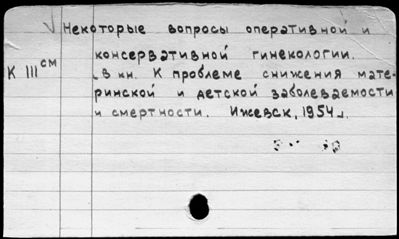 Некоторые вопросы оперативной и
консервативной гинекологии.
К III см
В кн. К проблеме снижения мате-
ринской и детской заболеваемости
и смертности. Ижевск, 1954 г.